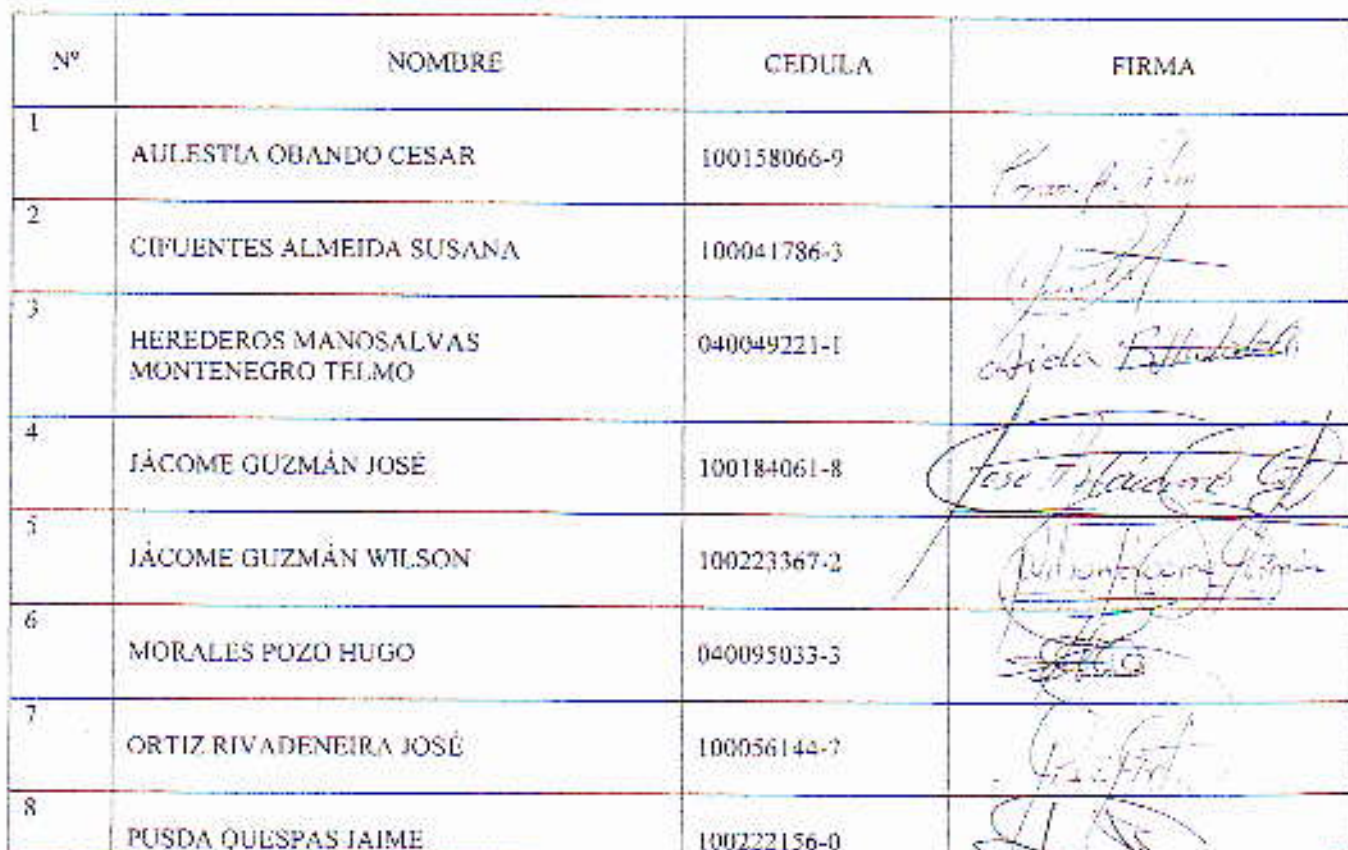 Nº NOMBRE CEDULA FIRMA
1
AULESTIA OBANDO CESAR 100158066-9
2
CIFUENTES ALMEIDA SUSANA 100041786-3
3
HEREDEROS MANOSALVAS 040049221-1 Aida
MONTENEGRO TELMO
4
JÁCOME GUZMÁN JOSÉ 100184061-8 José
5
JÁCOME GUZMÁN WILSON 100223367-2 Wilson Jácome Guzmán
6
MORALES POZO HUGO 040095033-3
7
ORTIZ RIVADENEIRA JOSÉ 100056144-7
8
PUSDA QUESPAS JAIME 100222156-0